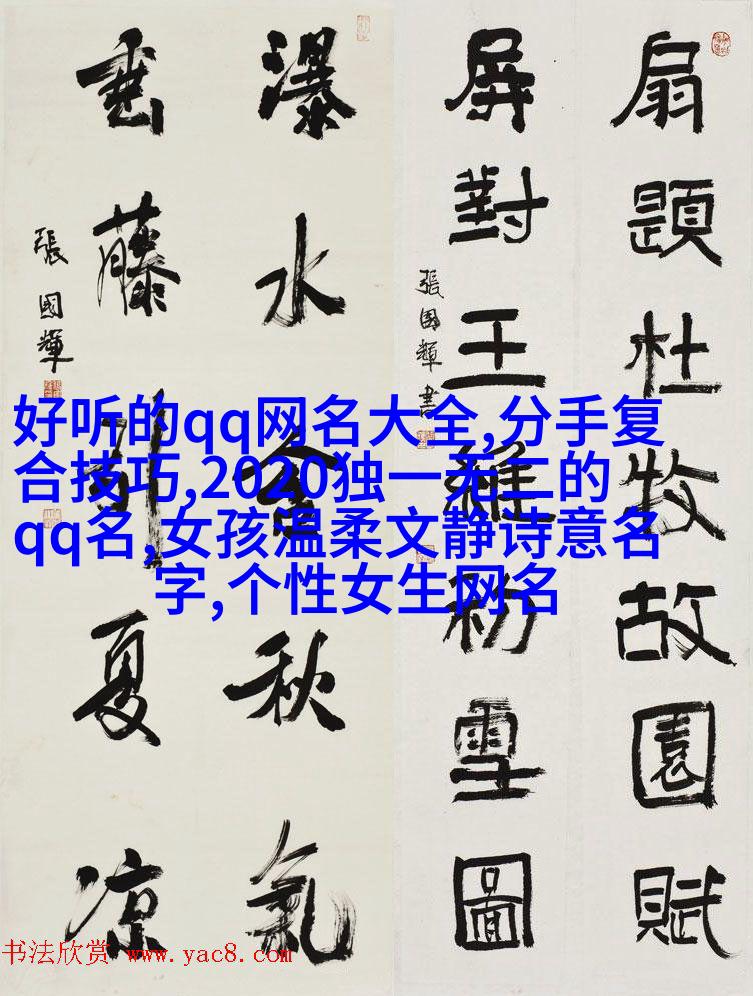 扇題杜牧故園賦
屏對王維初雪圖
張國輝書
瀑水含秋氣
垂藤引夏涼
張國輝
好听的qq网名大全,分手复
合技巧,2020独一无二的
qq名,女孩温柔文静诗意名
字,个性女生网名
书法欣赏 www.yac8.com